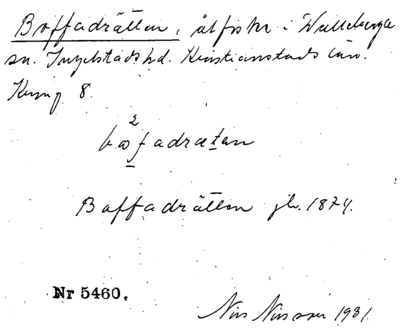 Boffadrätten, ålfiske i Valleberga
sn. Ingelstads hd. Kristianstads län.
8.
bofadrætan
2
Baffadrätten jb. 1874.
Nr 5460.
Nils Nilsson 1931